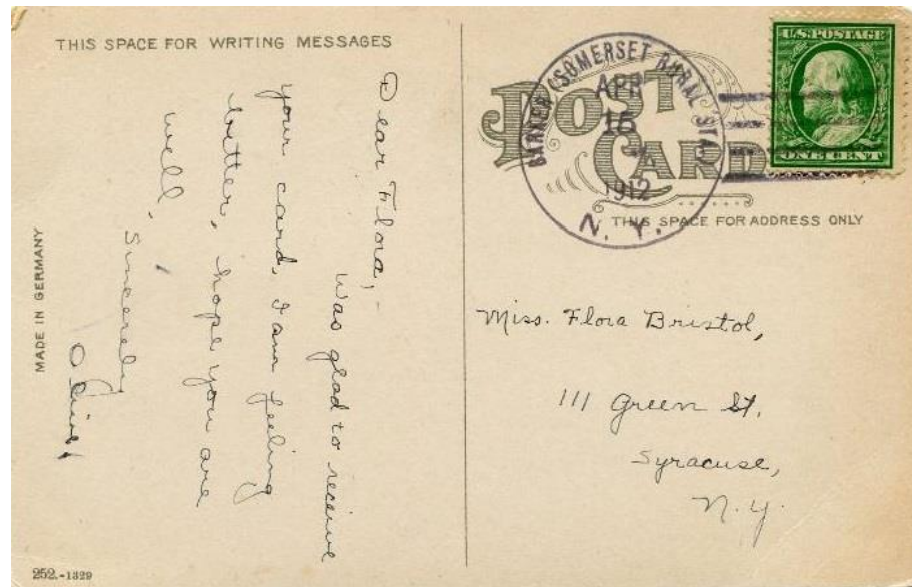 THIS SPACE FOR WRITING MESSAGES
Dear Flora,-
Was glad to receive
your card, I am feeling
better, hope you are
well,
Sincerely
Olive.
MADE IN GERMANY
252.-1329
POST
CARD
BARKER (SOMERSET RURAL STA.)
APR
15
1912
N. Y.
U.S. POSTAGE
ONE CENT
THIS SPACE FOR ADDRESS ONLY
Miss. Flora Bristol,
111 Green St.
Syracuse,
N.Y.